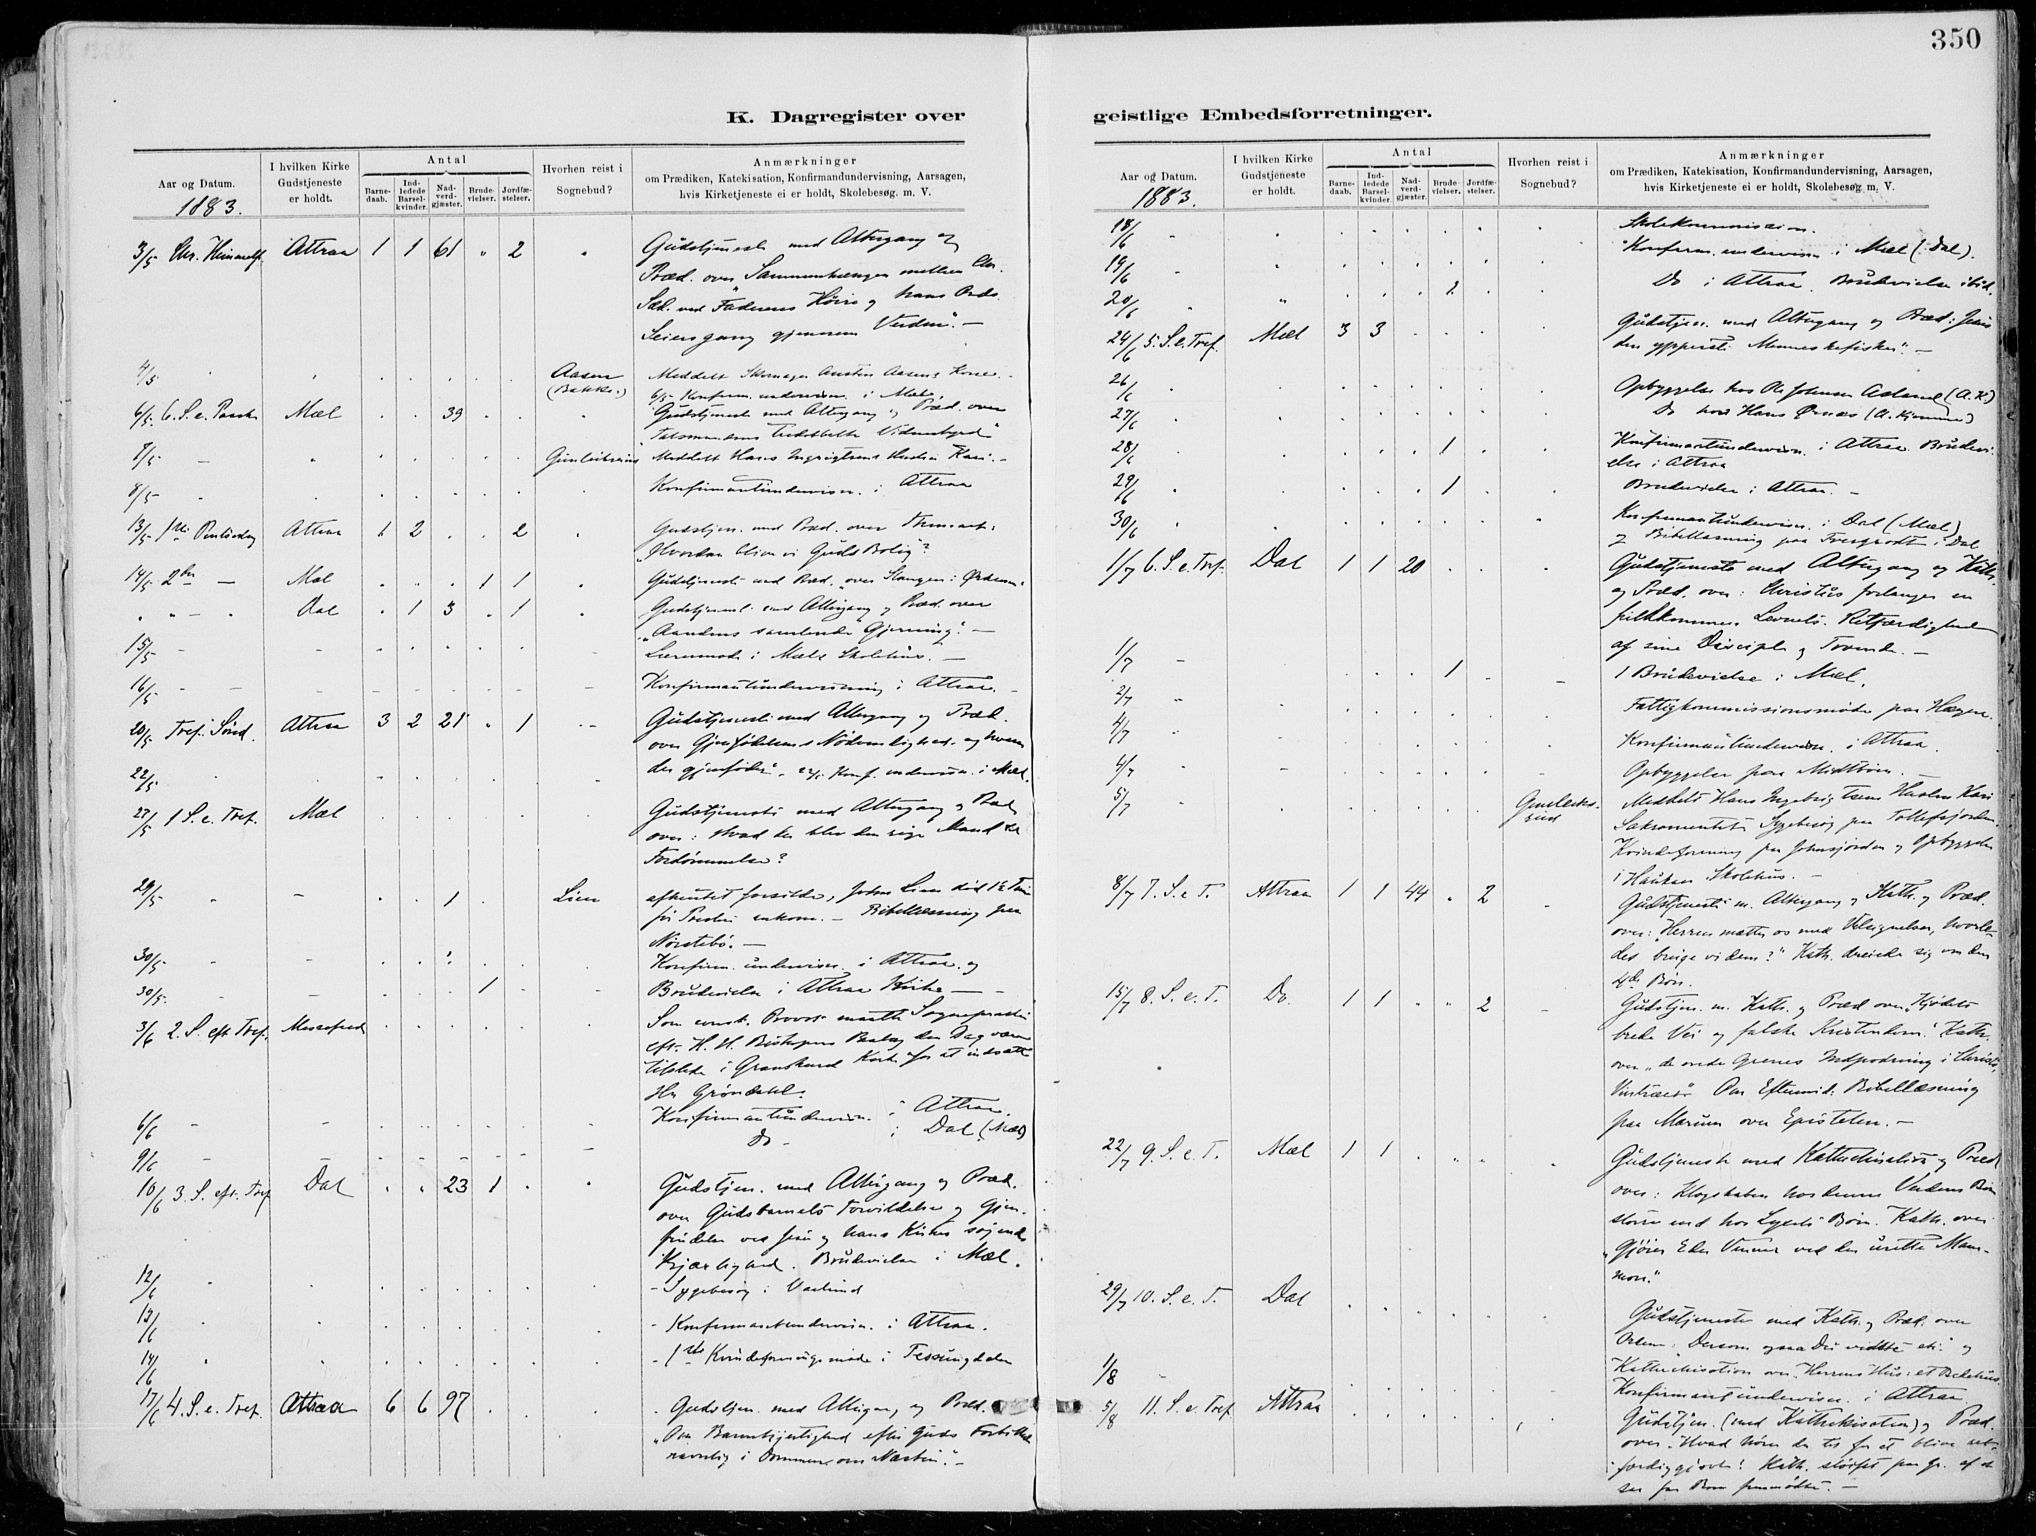 350
K. Dagregister over
Aar og Datum.
I hvilken Kirke Gudstjeneste er holdt.
Antal
Barnedaab.
Indledede Barselkvinder.
Nadverdgjæster.
Brudevielser.
Jordfæstelser.
Hvorhen reist i Sognebud?
Anmærkninger
om Prædiken, Katekisation, Konfirmandundervisning, Aarsagen,
hvis Kirketjeneste ei er holdt, Skolebesøg. m. V.
1883.
3/5 Chr. Himmelf. Attraa 1 1 61 " 2 Gudstjeneste med Altergang og
Præd. over Sammenhængen mellem Chr.
Sæd. ved Faderens Høire og hans Ords
Seiersgang gjennem Verden". —
4/5 Aasen (Bakke.) Meddelt Skomager Austen Aasens Kone.
Konfirm. undervisn. i Mæl.
6/5 6. S. e. Paaske Mæl 39 Gudstjeneste med Altergang og Præd. over
8/5 Meddelt Hans Kari. —
8/5 Konfirmantundervisn. i Attraa
13/5 1ste Pintsedag Attraa 1 2 2 Gudstjen. med Præd. over Themaet:
"Hvordan bliver vi Guds Bolig"?
14/5 2den — Mæl 1 1 Gudstjeneste med Præd. over Slangen i Ørkenen.
" Dal 1 3 1 Gudstjenest. med Altergang og Præd. over
"Aandens samlende Gjerning". —
15/5 Læremøde i Mæls Skolehus. —
16/5 Konfirmantundervisning i Attraa. —
20/5 Tref. Sønd. Attraa 3 2 21 " 1 Gudstjeneste med Altergang og Præd.
over Gjenfødelsens Nødvendighed og hvem
der gjenføder". 22/5 Konf. undervisn. i Mæl.
22/5
27/5 1 S. e. Tref. Mæl Gudstjeneste med Altergang og Præd.
over: Hvad der blev den rige Mand til
Fordømmelse?
29/5 1 Lien afhentet forsilde, John Lien død 1½ Time
før Presten ankom. — Bibellæsning paa
Nørstebø. —
30/5 Konfirm. undervisn. i Attraa. og
30/5 1 Brudevielse i Attraa Kirke —
3/6 2. S. eft. Tref. Messefrad Som const. Provst maatte Sognepræsten
eft. H. H. Biskopens Paalæg den Dag være
tilstede i Gransherad Kirke for at indsætte
Hr Grøndahl.
6/6 Konfirmantundervisn. i Attraa.
9/6 Do — i Dal (Mæl)
10/6 3. S. eft. Tref Dal 23 1 Gudstjen. med Altergang og Præd.
over Gudsbarnets Forvildelse og Gjen-
findelse ved Jesu og hans Kirkes søgende
Kjærlighed. Brudevielse i Mæl.
12/6 Sygebesøg i
13/6 Konfirmantundervisn. i Attraa.
14/6 1ste Kvindeforeningsmøde i Tessungdalen
17/6 4. S. e. Tref. Attraa 6 6 97 Gudstjen. med Altergang og Præd.
"Om Barmhjertighed efter Guds Forbillede
navnlig i Dommen om Næsten". —
geistlige Embedsforretninger.
Aar og Datum.
I hvilken Kirke Gudstjeneste er holdt.
Antal
Barnedaab.
Indledede Barselkvinder.
Nadverdgjæster.
Brudevielser.
Jordfæstelser.
Hvorhen reist i Sognebud?
Anmærkninger
om Prædiken, Katekisation, Konfirmandundervisning, Aarsagen,
hvis Kirketjeneste ei er holdt, Skolebesøg. m. V.
1883.
18/6 Skolekommission.
19/6 Konfirm. undervisn. i Mæl (: Dal).
20/6 Do i Attraa. Brudevielse ibid.
24/6 5. S. e. Tref. Mæl 3 3 Gudstjen. med Altergang og Præd: Jesus
den ypperste Menneskefisker". —
26/6 Opbyggelse hos Ole Johnsen (A. K.)
27/6 Do hos Hans Ørnæs
28/6 1 Konfirmantundervisn. i Attraa Brudevi-
else i Attraa
29/6 1 Brudevielse i Attraa. —
30/6 Konfirmantundervisn. i Dal (Mæl)
og Bibellæsning paa i Dal
1/7 6. S. e. Tref. Dal 1 1 20 Gudstjeneste med Altergang og Kath.
og Præd. over: Christus forlanger en
fuldkommen Levnets Retfærdighed
af sine Disciple og Troende. —
1/7 1 1 Brudevielse i Mæl.
2/7 Fattigkommissionsmøde paa Hagen.
4/7 Konfirmantundervisn. i Attraa.
4/7 Opbyggelse paa Midtbøen. —
5/7 Meddelt Hans Ingebrigtsens Hustru Kari
Sakramentet. Sygebesøg paa
Kvindeforening paa Johnsjorden og Opbyggelse
i Haukaas Skolehus. —
8/7 7. S. e. T. Attraa 1 1 44 " 2 Gudstjeneste m. Altergang og Kath. og Præd.
over: "Herren mætter os med Velsignelser, hvorle-
des bruge vi dem?" Kath. dreiede sig om den
4de Bøn.
15/7 8. S. e. T. Do. 1 1 " " 2 Gudstjen. m. Kath. og Præd over "Kjødets
brede Vei og falske Kristendom". Kath.
over "de onde Grenes Indpodning i Christi
Vintræet" Om Eftermid: Bibellæsning
paa Marum over Epistelen. —
22/7 9. S. e. T. Mæl 1 1 Gudstjeneste med Katechisation og Præd
over: Klogskaben hos denne Verdens Børn
større end hos Lysets Børn. Kath. over
"Gjører Eder Venner ved den urette Mam-
mon."
29/7 10. S. e. T. Dal Gudstjeneste med Kath. og Præd. over
Ordene: Dersom ogsaa Du vidste etc. og
Kathechisation over "Herrens Hus: et Bedehus
1/8 Konfirmantundervisn. i Attraa
5/8 11. S. e. Tref Attraa Gudstjen. (med Kathekisation) og Præd.
over "Hvad hører der til for at blive ret-
færdiggjort? Kath. sløifet paa Gr. af at
faa Børn fremmødte. —